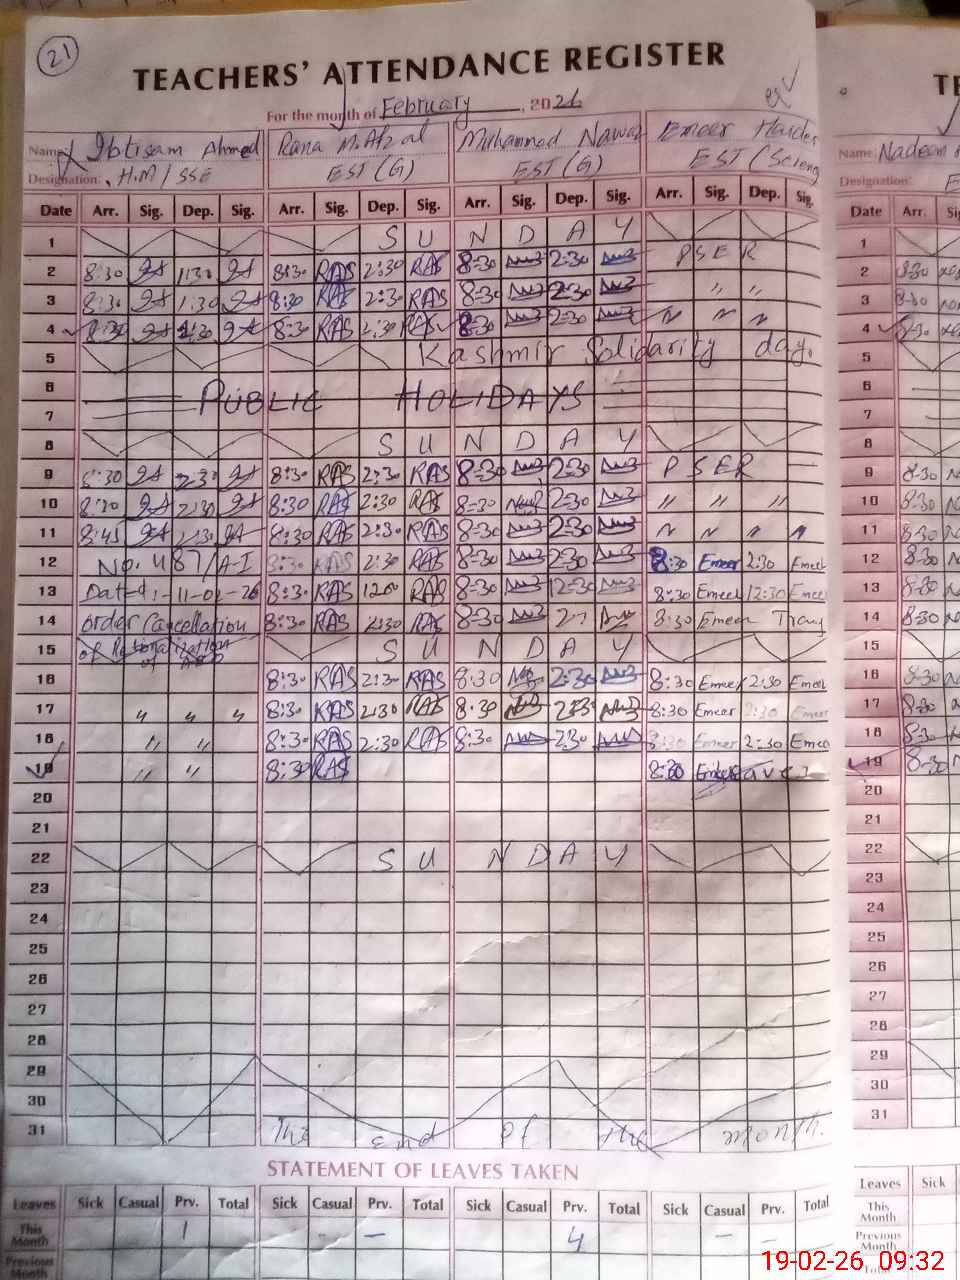 21
TEACHERS' ATTENDANCE REGISTER
For the month of February, 2026
Name Ibtisam Ahmed Rana M. Afzal Muhammad Nawaz Emeer Haider
Designation: H.M / SSE EST (G) EST (G) EST (Scienc
Date Arr. Sig. Dep. Sig. Arr. Sig. Dep. Sig. Arr. Sig. Dep. Sig. Arr. Sig. Dep. Sig.
1 S U N D A Y
2 8:30 1:30 8:30 RAS 2:30 RAS 8-30 2:30 PSER
3 8:30 1:30 8:30 RAS 2:30 RAS 8-30 2-30 " "
4 8:30 1:30 8:30 RAS 2:30 RAS 8-30 2-30 " " "
5 Kashmir Solidarity day.
6 PUBLIC HOLIDAYS
7
8 S U N D A Y
9 8:30 2:30 8:30 RAS 2:30 RAS 8-30 2-30 PSER
10 8:30 2:30 8:30 RAS 2:30 RAS 8-30 2-30 " " "
11 8:45 2:30 8:30 RAS 2:30 RAS 8-30 2-30 " " " "
12 No. 487/A-I 8:30 RAS 2:30 RAS 8-30 2-30 8:30 Emeer 2:30 Emeer
13 Dated:- 11-02-26 8:30 RAS 1200 RAS 8-30 12-30 8:30 Emeer 12:30 Emeer
14 order Cancellation 8:30 RAS 2:30 RAS 8-30 8:30 Emeer
15 of S U N D A Y
16 8:30 RAS 2:30 RAS 8:30 2-30 8:30 Emeer 2:30 Emeer
17 " " " 8:30 RAS 2:30 RAS 8-30 2:30 8:30 Emeer 2:30 Emeer
18 " " 8:30 RAS 2:30 RAS 8:30 2:30 8:30 Emeer 2:30 Emee
19 " " 8:30 RAS 8:30
20
21
22 S U N D A Y
23
24
25
26
27
28
29
30
31 The end of the month.
STATEMENT OF LEAVES TAKEN
Leaves Sick Casual Prv. Total Sick Casual Prv. Total Sick Casual Prv. Total Sick Casual Prv. Total
This Month 1 - - 4 - -
Previous Month
TE
Name: Nadeem
Designation:
Date Arr. Si
1
2 8-30
3 8-30
4 8-30
5
6
7
8
9 8-30
10 8-30
11 8-30
12 8-30
13 8-30
14 8-30
15
16 8-30
17 8-30
18 8-30
19 8-30
20
21
22
23
24
25
26
27
28
29
30
31
Leaves Sick
This Month
Previous Month
19-02-26 09:32